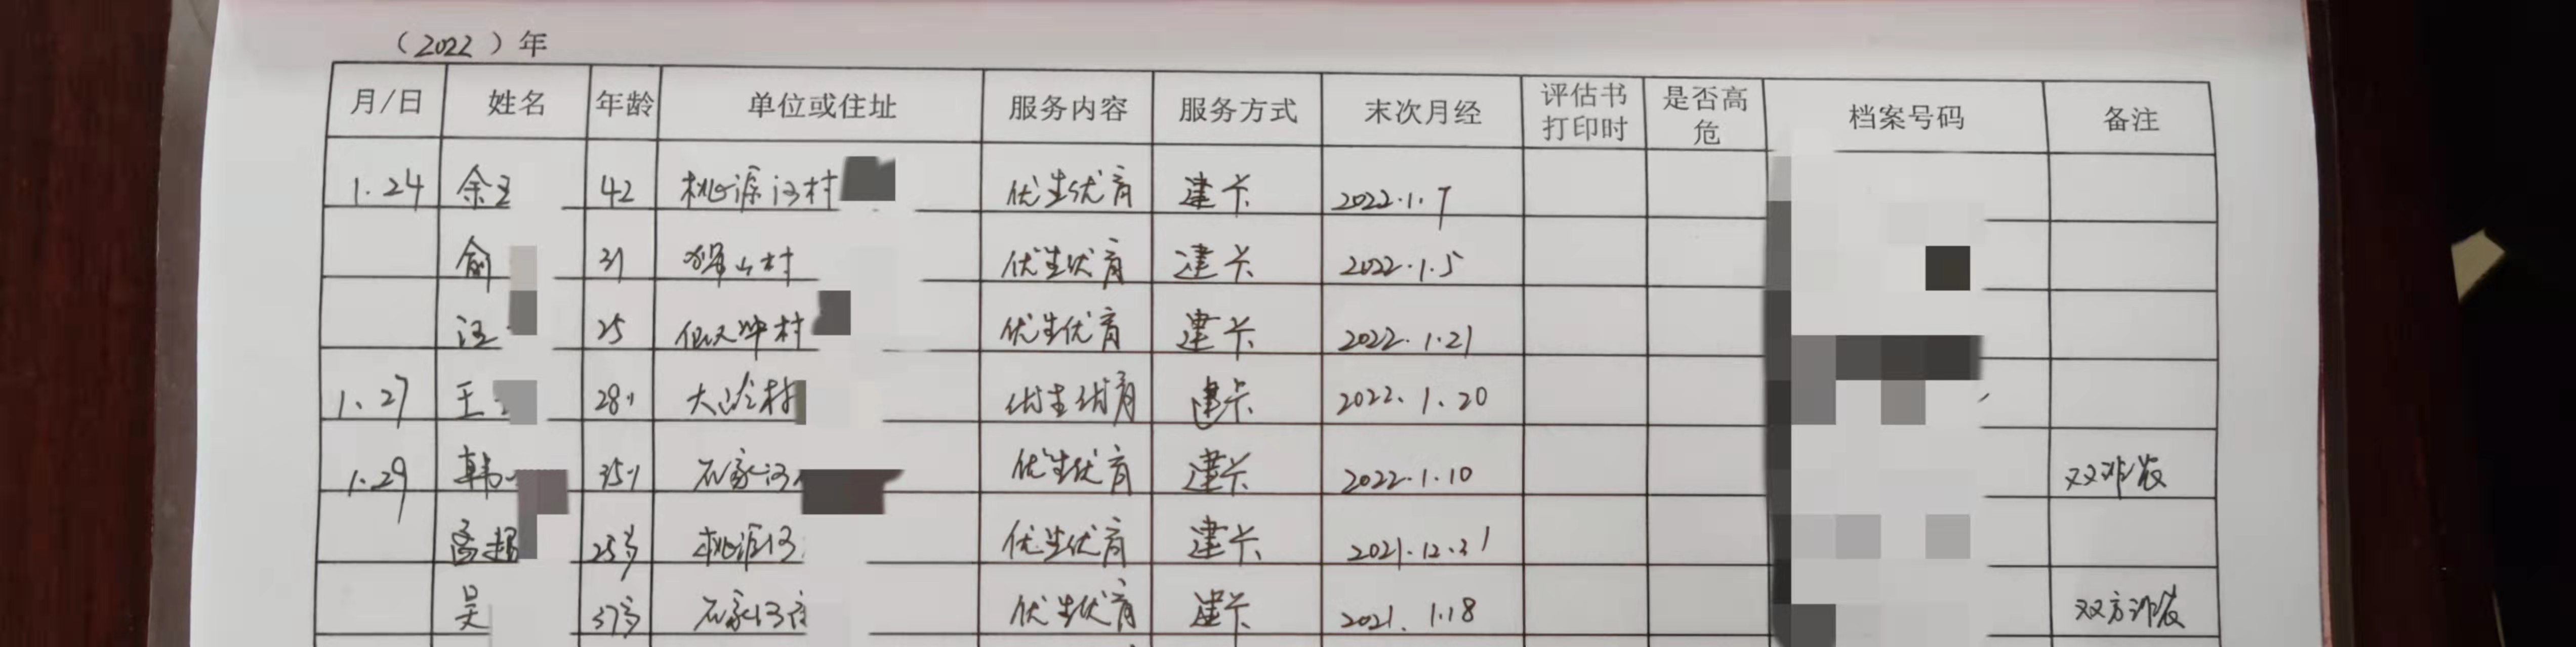 （2022）年
月/日 姓名 年龄 单位或住址 服务内容 服务方式 末次月经 评估书打印时 是否高危 档案号码 备注
1.24 余 42 桃源河村 优生优育 建卡 2022.1.7
俞 31 山村 优生优育 建卡 2022.1.5
汪 25 冲村 优生优育 建卡 2022.1.21
1.27 王 28岁 大岭村 优生优育 建卡 2022.1.20
1.29 韩 35岁 石家河 优生优育 建卡 2022.1.10 双非农
25岁 桃源河 优生优育 建卡 2021.12.31
吴 37岁 石家河 优生优育 建卡 2021.1.18 双方非农